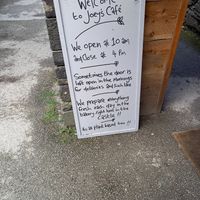 Welcome
to Joey's Café
We open @ 10 am
and close @ 4 pm
Sometimes the door is
left open in the mornings
for deliveries and such like
We prepare everything
fresh each day in the
bakery right here in the
Castle !!